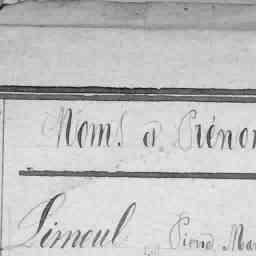 Noms & Prénom
Limoul Pierre Mar